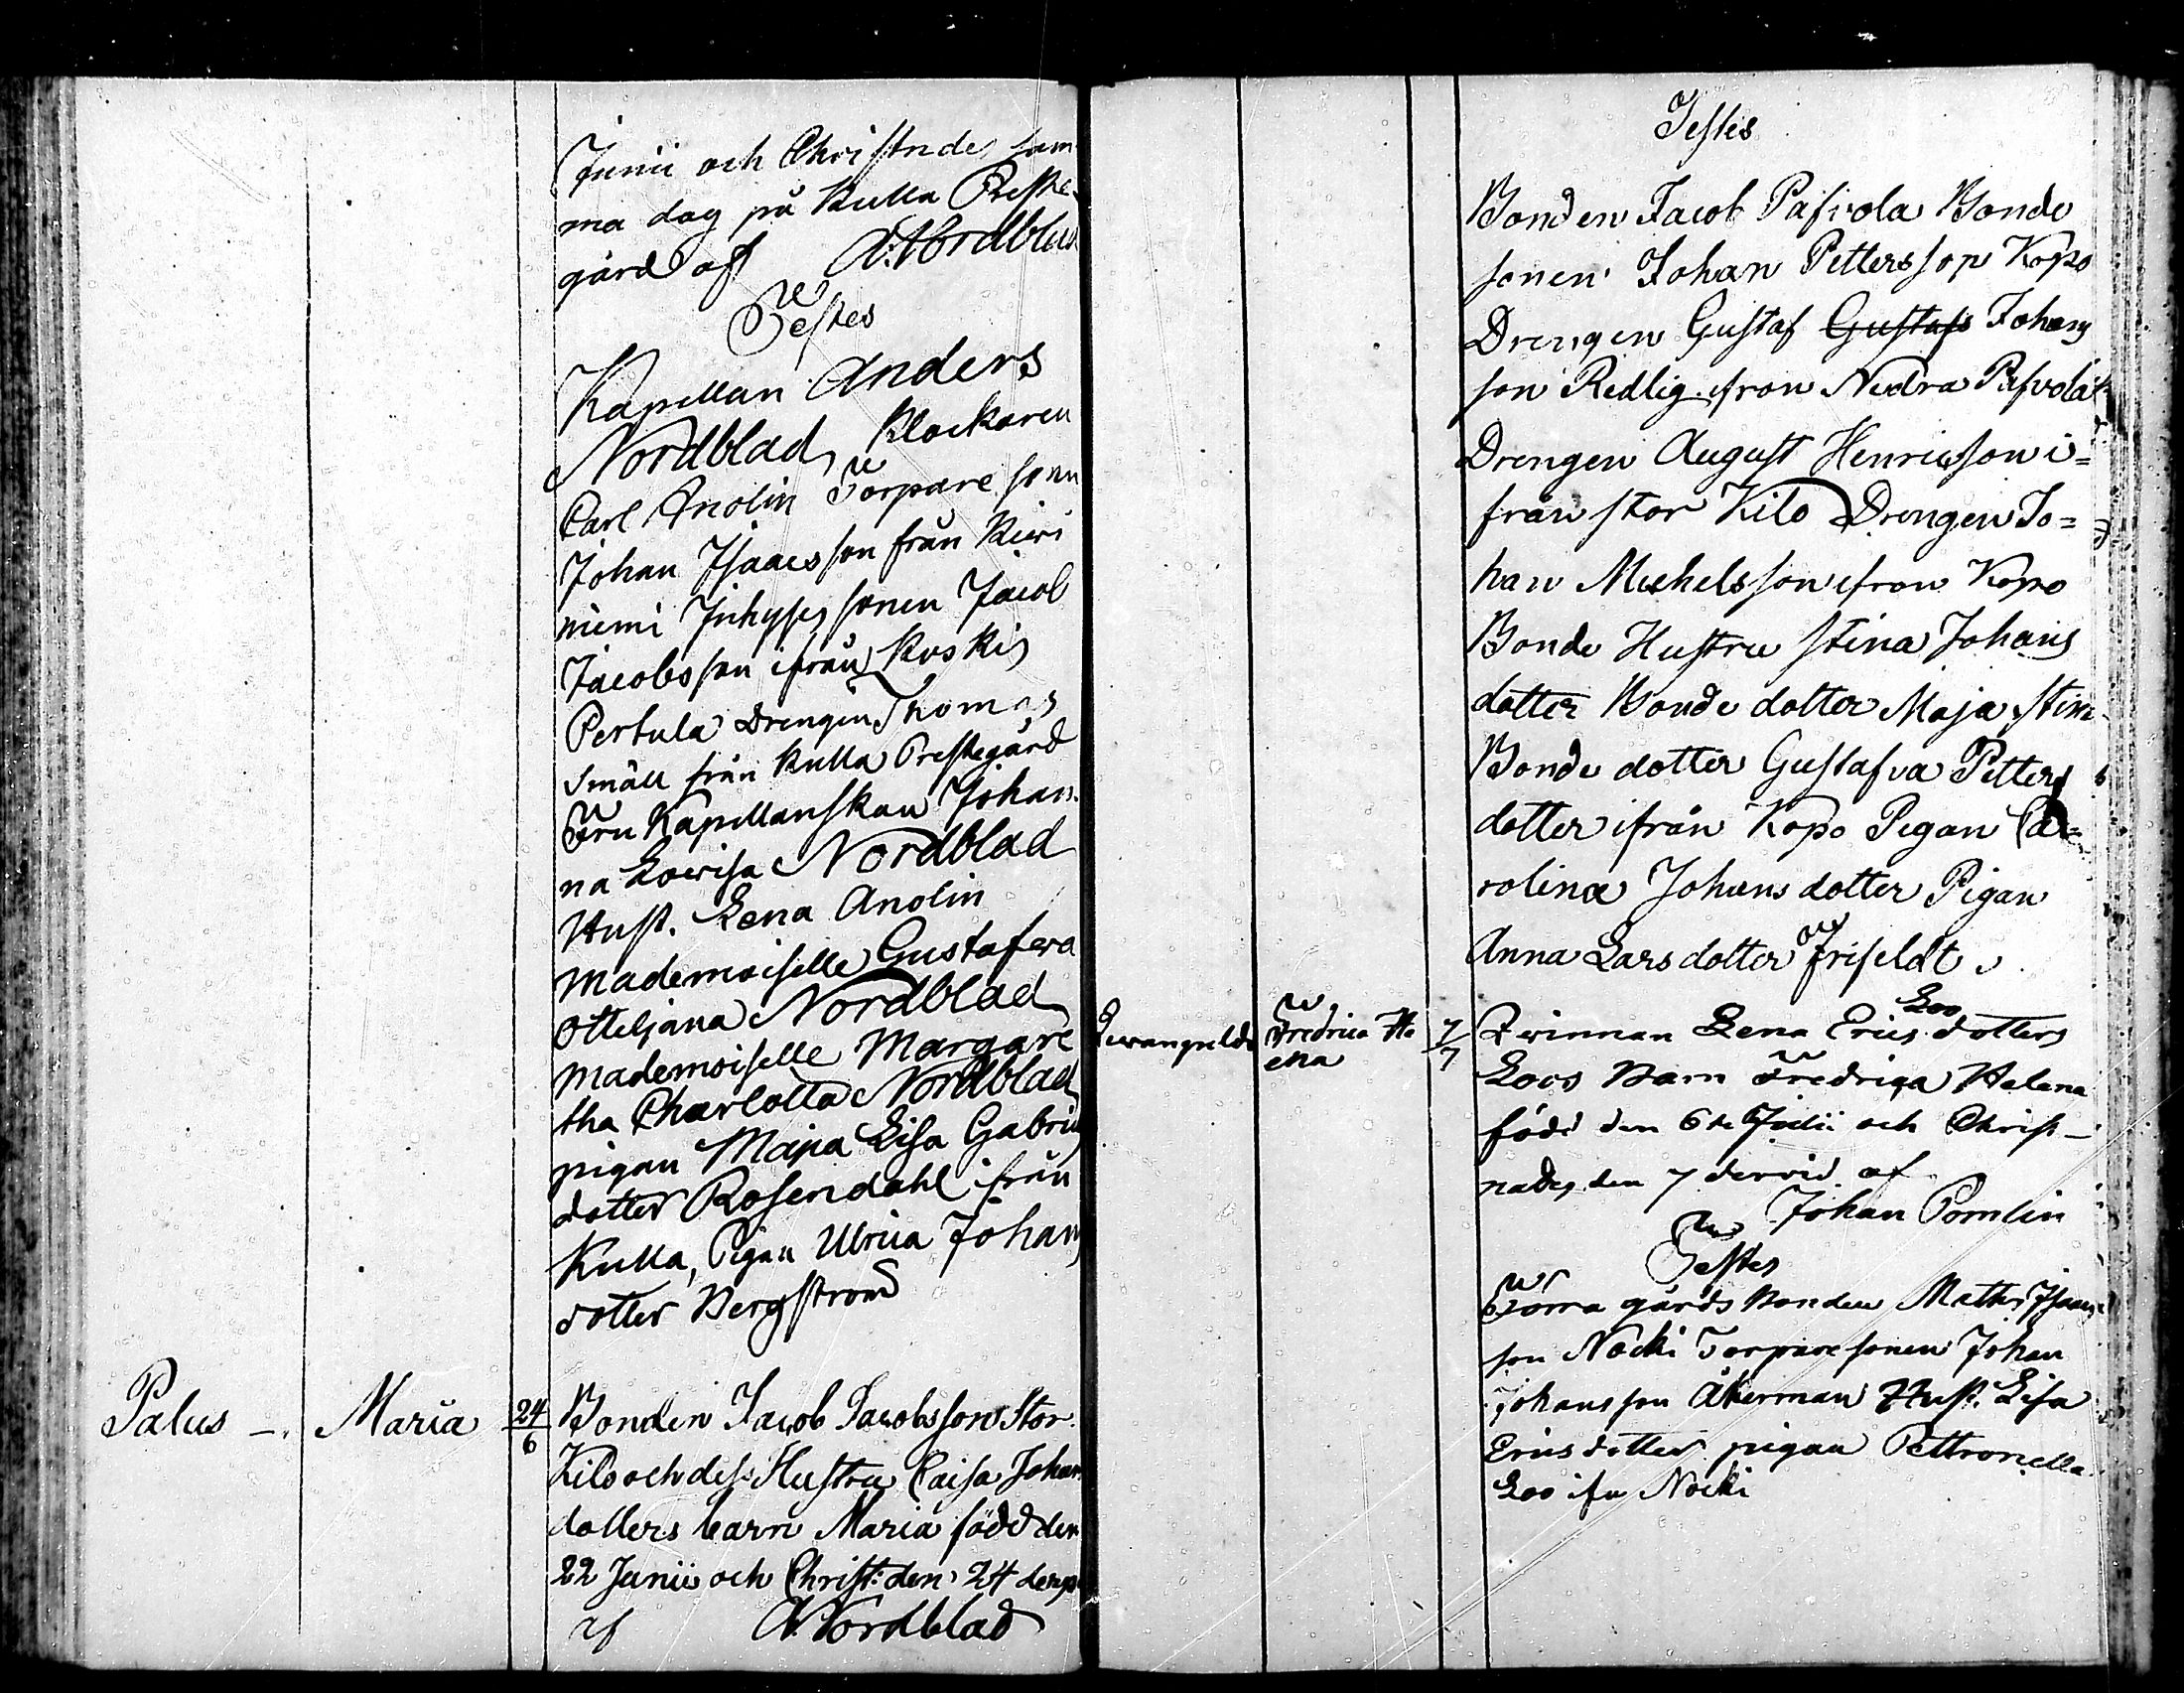 Junii och Christndes sam
ma dag på Kulla Preste-
gård af A: Nordblad
Testes
Kapellan Anders
Nordblad, Klockaren
Carl Anolin Torpare sonn
Johan Isaacsson från Kiwi
niemi Inhyses sonen Jacob
Jacobsson ifrån Koskis
Pertula Drengen Thomas
Smäll från Kulla Prestegård
Fru Kapellanskan Johan
na Lowisa Nordblad
Hust. Lena Anolin
Mademoiselle Gustafwa
Otteljana Nordblad
Mademoiselle Margare
tha Charlotta Nordblad
pigan Maja Lisa Gabriels
dotter Rosendahl ifrån
Kulla, Pigan Ulrica Johans
dotter Bergström
Palus -. Maria 24/6 Bonden Jacob Jacobsson Stor
Kilo och dess Hustru Caisa Johans
dotters barn Maria född den
22 Junii och Christ: den 24 
af A. Nordblad
Testes
Bonden Jacob Pasvola Bonde
sonen Johan Pettersson Kopo
Drengen Gustaf Gustafs Johans
son Redlig ifron Nedra Pasvola
Drengen August Henricsson i=
från stor Kilo Drengen Jo=
han Michelsson ifron Kopo
Bonde Hustru Stina Johans
dotter Bonde dotter Maja Stina
Bonde dotter Gustafva Petters
dotter ifrån Kopo Pigan Ca=
rolina Johans dotter Pigan
Anna Larsdotter Frifeldt
Fredrica He 7/7 Qwinnan Lena Erics dotters Loo
lena Loos Barn Fredrica Helena
född den 6te Julii och Christ-
nades den 7 dervid af
Johan Pomlin
Testes
gårds Bonden Matts Isaacs
son Nocki Torpare sonen Johan
Johansson Åkerman Hust. Lisa
Ericsdotter pigan Pettronella
Loo ifn Nocki